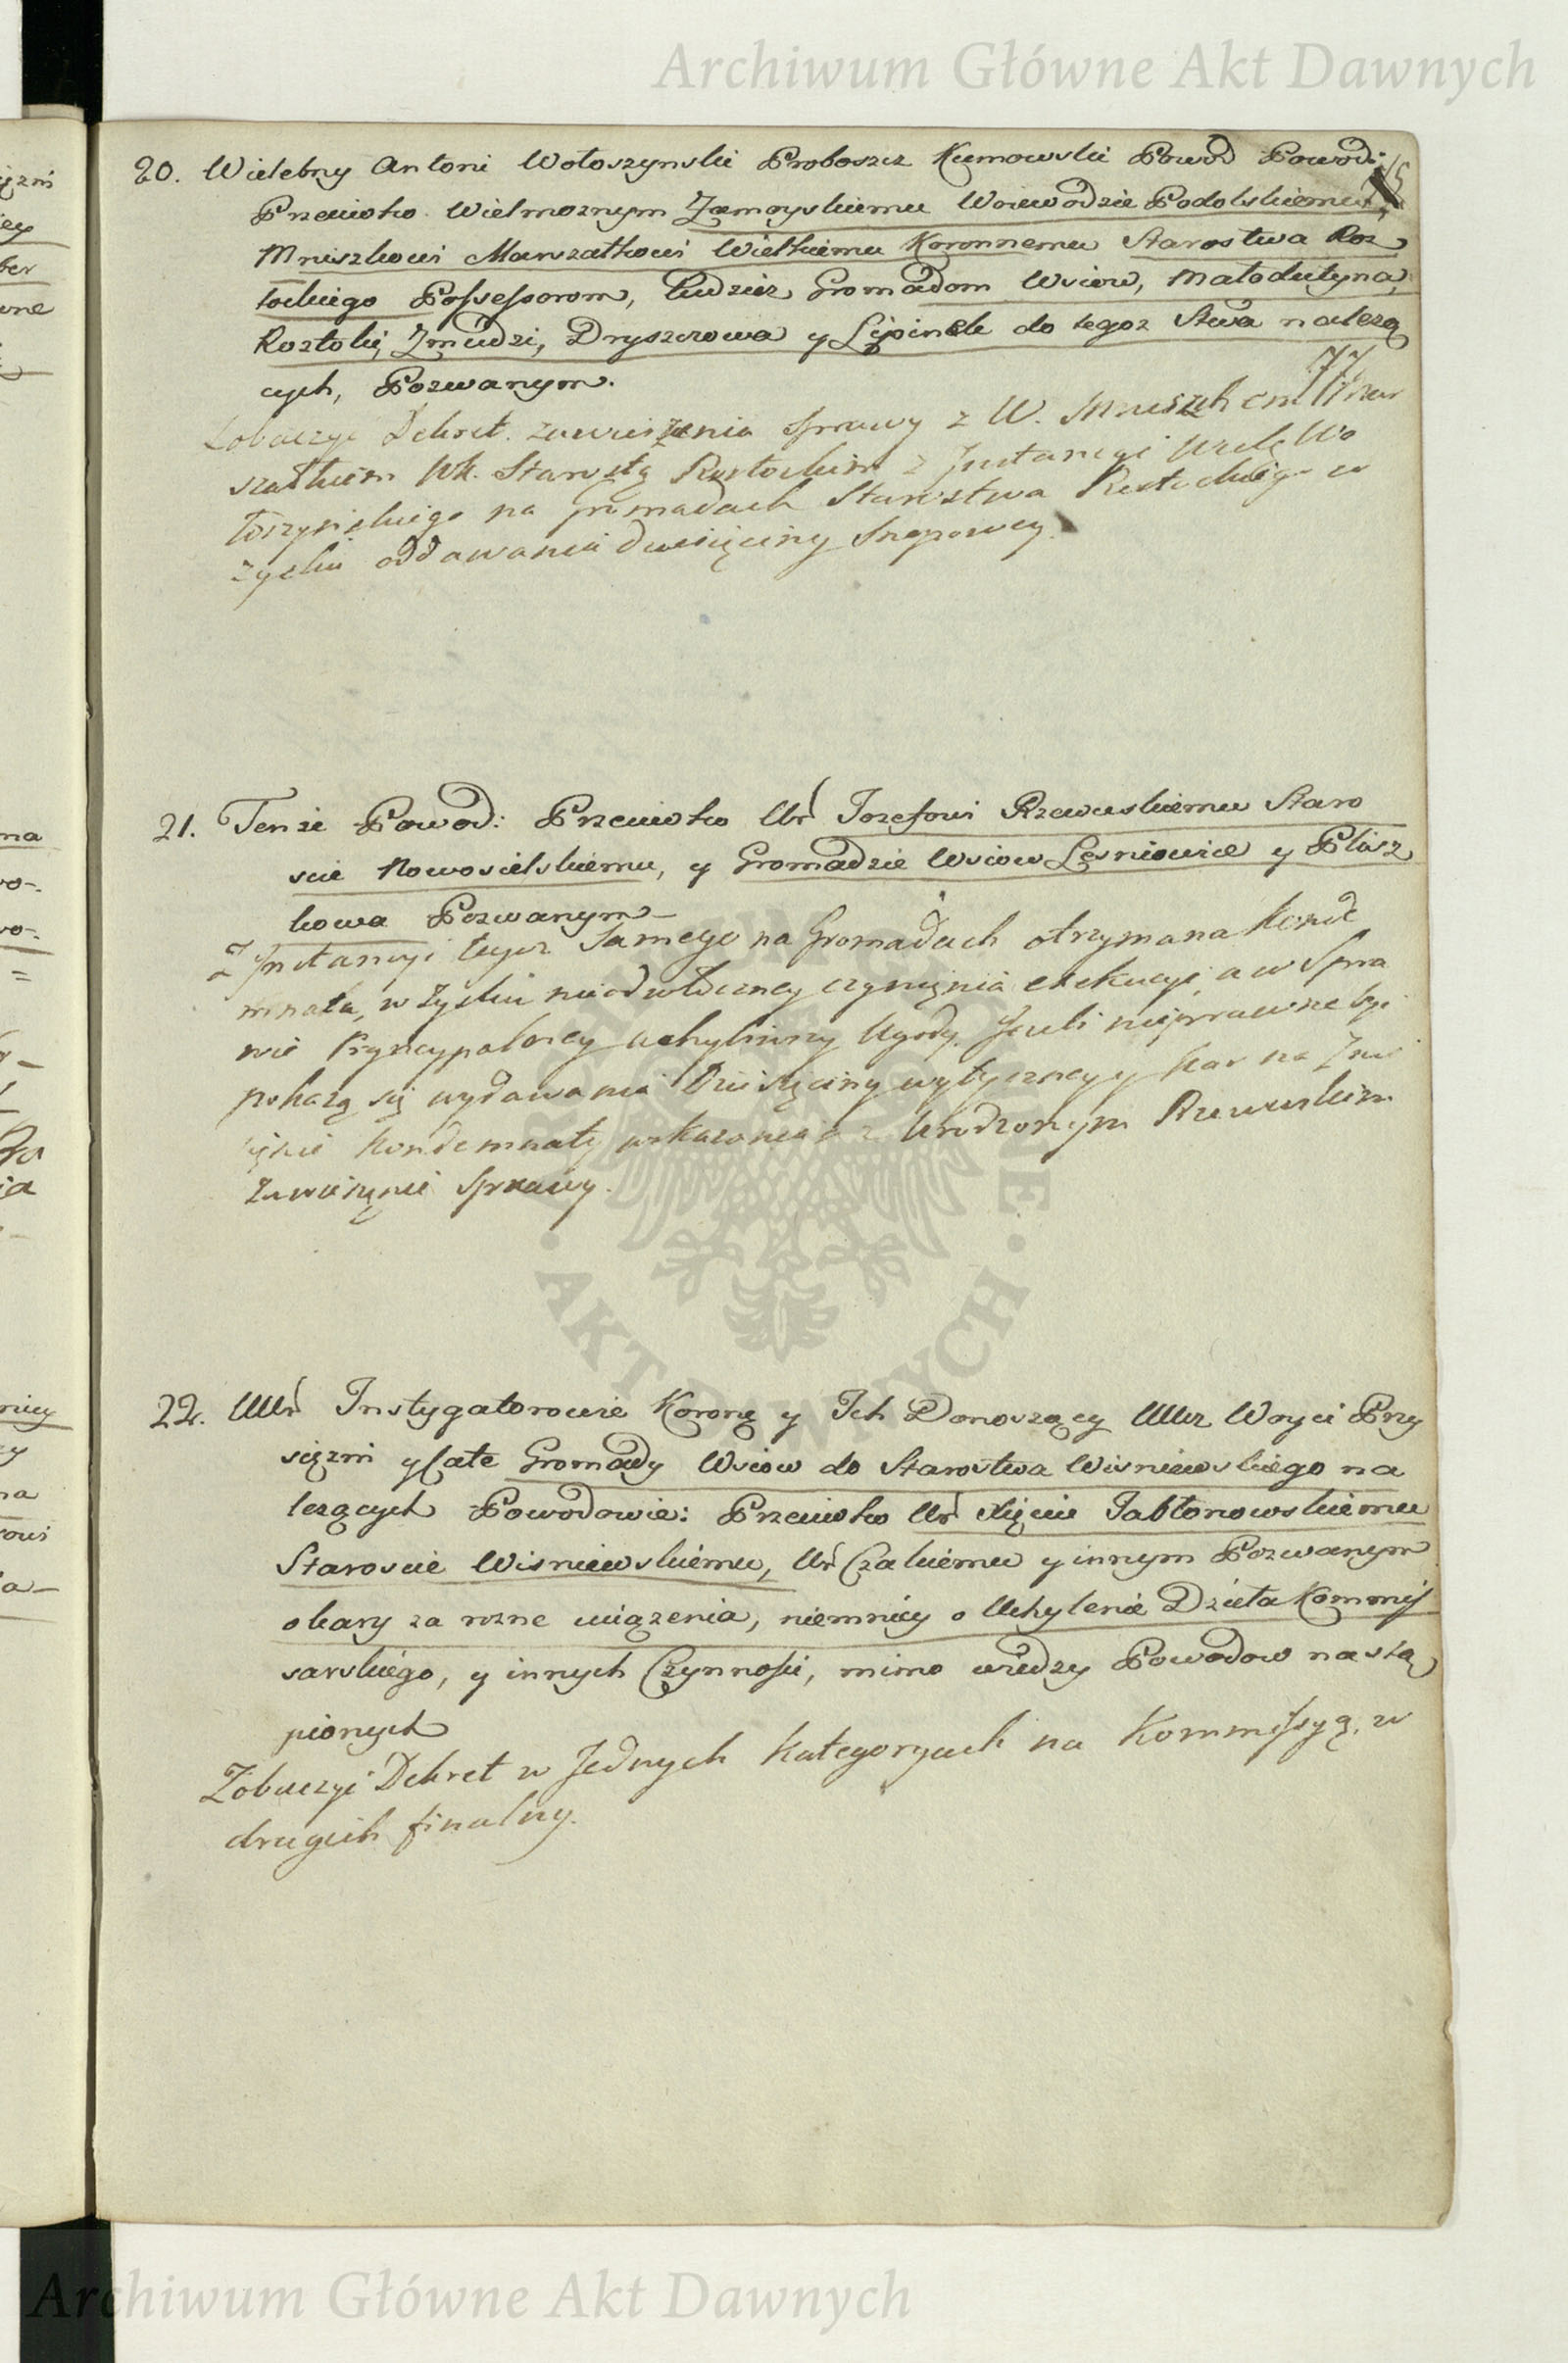 Archiwum Główne Akt Dawnych
20. Wielebny Antoni Wołoszynski Proboszcz Kumowski Powod Powod:
Przeciwko Wielmoznym Zamoyskiemu Woiewodzie Podolskiemu,
Mniszkowi Marszałkowi Wielkiemu Koronnemu Starostwa Roz
tockiego Possessorom, tudziez Gromadom Wsiow, Małodutyna,
Roztoki, Zmudzi, Dryszczowa y Lipinek do tegoz Stwa nalezą
cych, Pozwanym.
77
Zobaczyć Dekret zawieszenia sprawy z W. Mniszkiem Mar
szałkiem Wk. Starostą Roztockim z Instancyi Wielę Wo
łoszynskiego na gromadach Starostwa Roztockiego w
zysku oddawania dziesięciny Snopowey.
21. Tenże Powod: Przeciwko Ur Jozefowi Rzewuskiemu Staro
scie Nowosielskiemu, y Gromadzie Wsiow Lesniowice y Plisz
kowa Pozwanym
Z Instancyi tegoz Samego na Gromadach otrzymana Konde
mnata, w Zysku nieodwłoczney czynienia exekucyi, a w Spra
wie Pryncypalney uchylenny Ugody, Jeżeli nieprawne być
pokażą się wydawania Dziesięciny wytyczney y kar na
Kondemnaty wskazania z Urodzonym Rzewuskim
Zawieszenie Sprawy.
22. UUr Instygatorowie Korony y Ich Donoszący UUcz Woyci Przy
siężni y Całe Gromady Wsiow do Starostwa Wisniewskiego na
lezących Powodowie: Przeciwko Ur Xięciu Jabłonowskiemu
Staroscie Wisniewskiemu, Ur Czakiemu y innym Pozwanym
o kary za rozne uciązenia, niemniey o Uchylenie Dzieła Kommis
sarskiego, y innych Czynnosci, mimo wiedzy Powodow nastą
pionych
Zobaczyć Dekret w Jednych Kategoryach na Kommissyą, w
drugich finalny.
ARCHIWUM GŁÓWNE · AKT DAWNYCH ·
Archiwum Główne Akt Dawnych